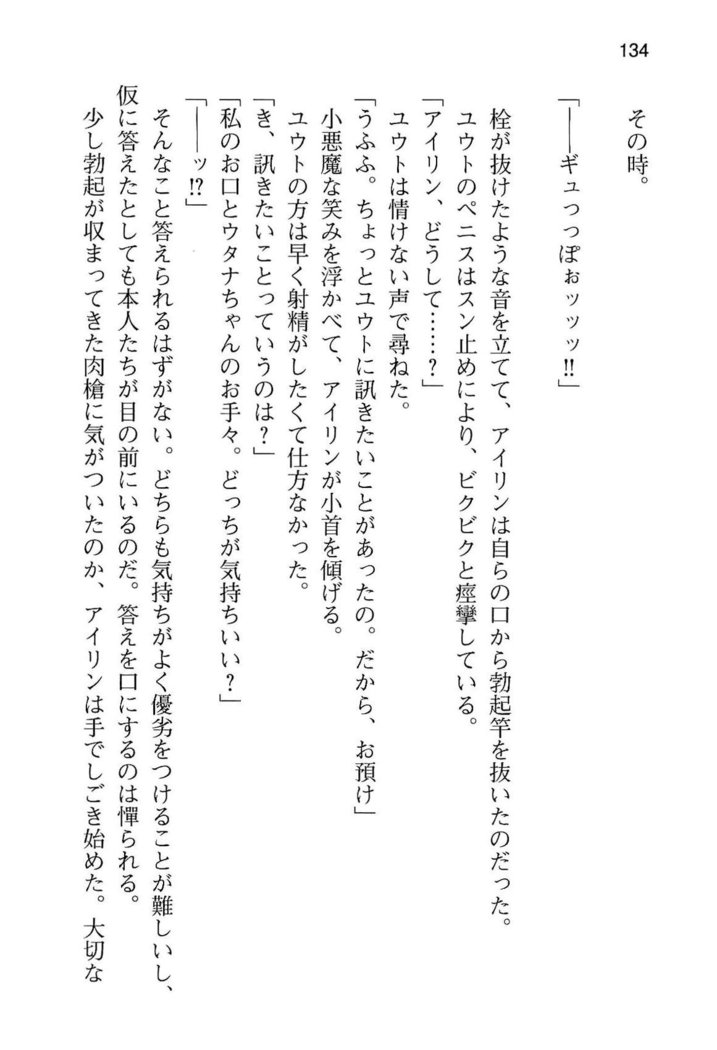 134
その時。
「――ギュっっぽぉッッッ!!」
栓が抜けたような音を立てて、アイリンは自らの口から勃起竿を抜いたのだった。
ユウトのペニスはスン止めにより、ビクビクと痙攣している。
「アイリン、どうして……?」
ユウトは情けない声で尋ねた。
「うふふ。ちょっとユウトに訊きたいことがあったの。だから、お預け」
小悪魔な笑みを浮かべて、アイリンが小首を傾げる。
ユウトの方は早く射精がしたくて仕方なかった。
「き、訊きたいことっていうのは?」
「私のお口とウタナちゃんのお手々。どっちが気持ちいい?」
「――ッ!?」
そんなこと答えられるはずがない。どちらも気持ちがよく優劣をつけることが難しいし、
仮に答えたとしても本人たちが目の前にいるのだ。答えを口にするのは憚られる。
少し勃起が収まってきた肉槍に気がついたのか、アイリンは手でしごき始めた。大切な